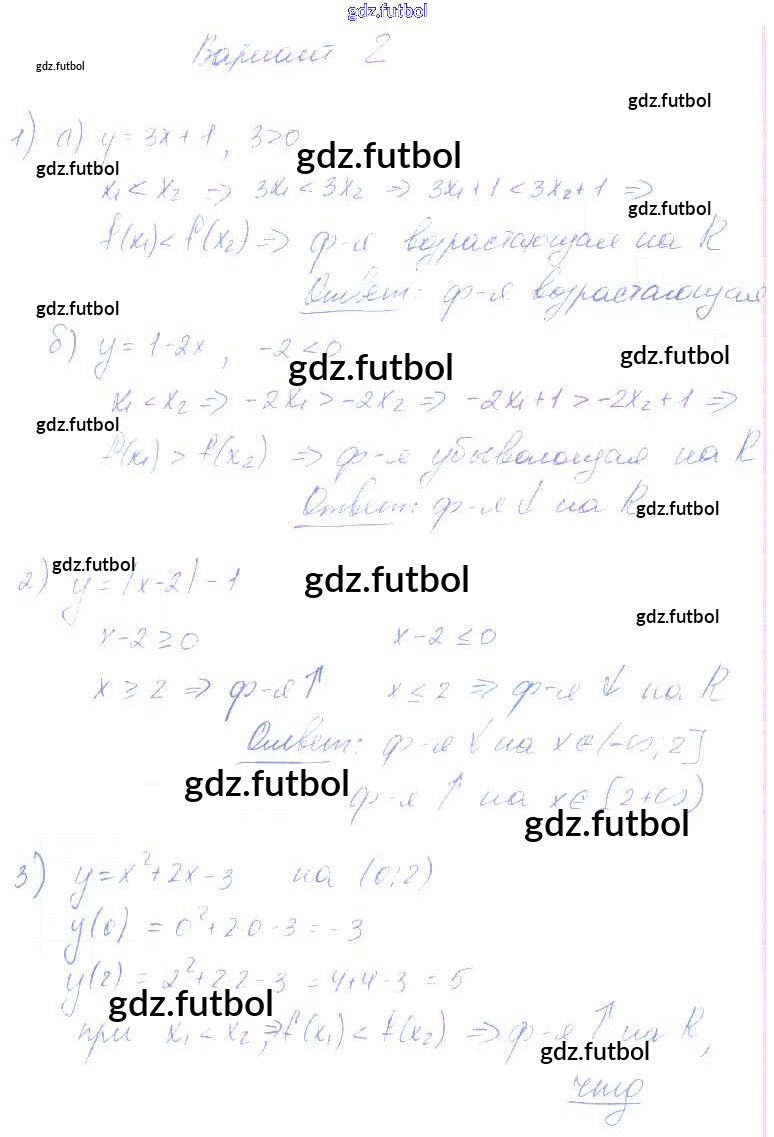 gdz.futbol
Вариант 2
gdz.futbol
gdz.futbol
1) а) y = 3x + 1, 3 > 0
gdz.futbol
gdz.futbol
x₁ < x₂ ⇒ 3x₁ < 3x₂ ⇒ 3x₁ + 1 < 3x₂ + 1 ⇒
gdz.futbol
f(x₁) < f(x₂) ⇒ ф-я возрастающая на R
Ответ: ф-я возрастающая
gdz.futbol
б) y = 1 - 2x, -2 < 0
gdz.futbol
gdz.futbol
x₁ < x₂ ⇒ -2x₁ > -2x₂ ⇒ -2x₁ + 1 > -2x₂ + 1 ⇒
gdz.futbol
f(x₁) > f(x₂) ⇒ ф-я убывающая на R
Ответ: ф-я ↓ на R
gdz.futbol
gdz.futbol
2) y = |x - 2| - 1
gdz.futbol
gdz.futbol
x - 2 ≥ 0 x - 2 ≤ 0
x ≥ 2 ⇒ ф-я ↑ x ≤ 2 ⇒ ф-я ↓ на R
Ответ: ф-я ↓ на x ∈ (-∞; 2]
gdz.futbol
ф-я ↑ на x ∈ [2 +∞)
gdz.futbol
3) y = x² + 2x - 3 на (0; 2)
y(0) = 0² + 2·0 - 3 = -3
y(2) = 2² + 2·2 - 3 = 4 + 4 - 3 = 5
gdz.futbol
при x₁ < x₂, ⇒ f(x₁) < f(x₂) ⇒ ф-я ↑ на R,
gdz.futbol
чтд